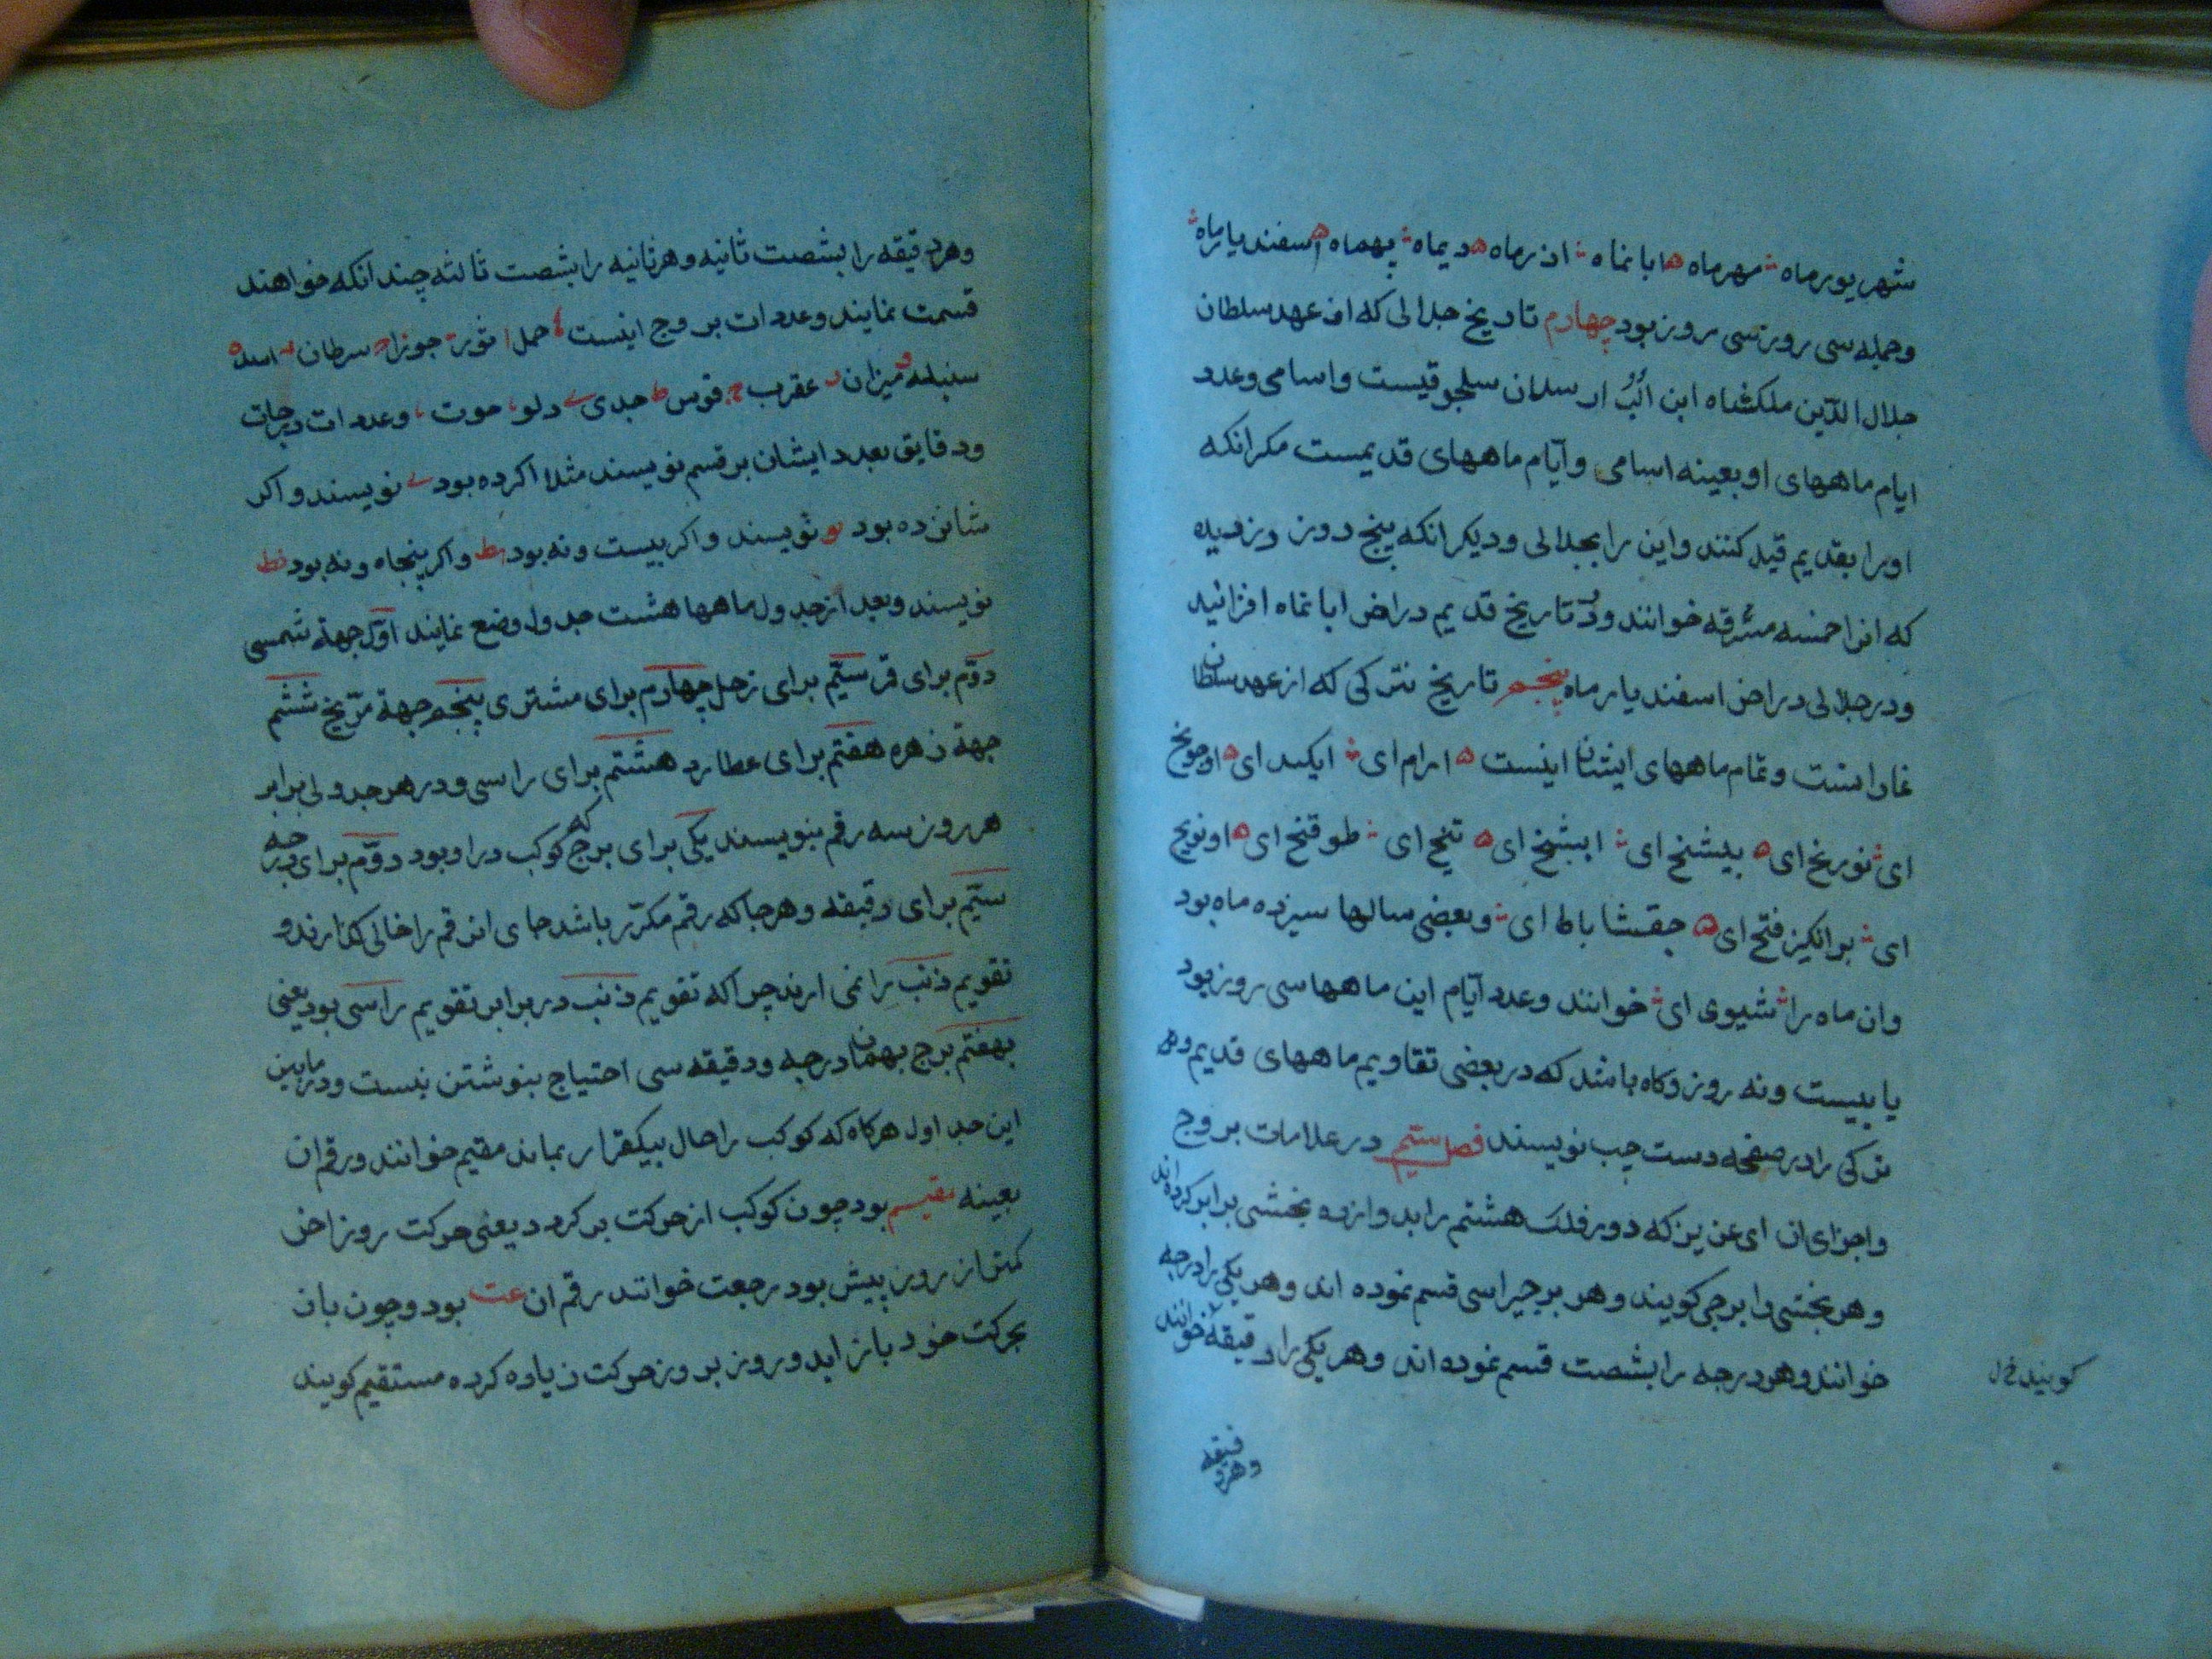 شهریورماه مهرماه ابانماه اذرماه دیماه بهماه اسفندیارماه
وجمله سی روز سی روز بود چهارم تاریخ جلالی که از عهد سلطان
جلال الدّین ملکشاه ابن الب ارسلان سلجوقیست واسامی وعدد
ایام ماههای او بعینه اسامی وآیام ماههای قدیمست مکر انکه
اورا بقدیم قید کنند واین را بجلالی ودیکر انکه پنج روز دزدیده
که انرا خمسه مسرقه خوانند ودر تاریخ قدیم دراخر ابانماه افزائید
ودر جلالی دراخر اسفندیارماه پنجم تاریخ ترکی که از عهد سلطان
غازانست وتمام ماههای ایشان اینست ارام ای ایکندای اوجونج
ای تورنج ای بیشنج ای التنج ای تنج ای طوقنج ای اونونج
ای برانکیز فنج ای جقشاباط ای وبعضی سالها سیزده ماه بود
وان ماه را شیوی ای خوانند وعدد آیام این ماهها سی روز بود
یا بیست ونه روز وکاه باشد که در بعضی تقاویم ماههای قدیم و
ترکی را در صفحه دست چپ نویسند فصل ستیم در علامات بروج
واجزای ان ای عزیز که دور فلک هشتم را بدوازده بخشی برابر کرده اند
وهر بخشی را برجی کویند وهر برجیرا سی قسم نموده اند وهر یکی را درجه
خوانند وهر درجه را بشصت قسم نموده اند وهر یکی را دقیقه خوانند
کویند
وهر دقیقه
وهر دقیقه را بشصت ثانیه وهر ثانیه را بشصت ثالثه چندانکه خواهند
قسمت نمایند وعددات بروج اینست حمل ا ثور جوزا سرطان اسد
سنبله و میزان عقرب قوس ح جدی ط دلو ی حوت وعددات درجات
ودقایق بعدد ایشان بر قسم نویسند مثلا اکر ده بود ی نویسند واکر
شانزده بود یو نویسند واکر بیست ونه بود کط واکر پنجاه ونه بود نط
نویسند وبعد از جدول ماهها هشت جدول وضع نمایند اوّل جهة شمسی
دوّم برای قمر ستیّم برای زحل چهارم برای مشتری پنجم جهة مرّیخ ششم
جهة زهره هفتم برای عطارد هشتم برای راسی ودر هر جدولی برابر
هر روز سه رقم بنویسند یکی برای برج که کوکب دراو بود دوّم برای درجه
ستیّم برای دقیقه وهرجا که رقم مکرّر باشد جای ان رقم را خالی کذارند و
تقویم ذنب را نمی ارند چرا که تقویم ذنب در برابر تقویم راسی بود یعنی
بهفتم برج بهمان درجه ودقیقه سی احتیاج بنوشتن نیست ودر مابین
این جداول هرکاه که کوکب را حال بیکقرار بماند مقیم خوانند ورقم ان
بعینه مقیم بود چون کوکب از حرکت برکردد یعنی حرکت روز اخر
کمتر از روز پیش بود رجعت خوانند رقم ان عت بود وچون بان
بحرکت خود باز اید وروز بروز حرکت زیاده کرده مستقیم کویند